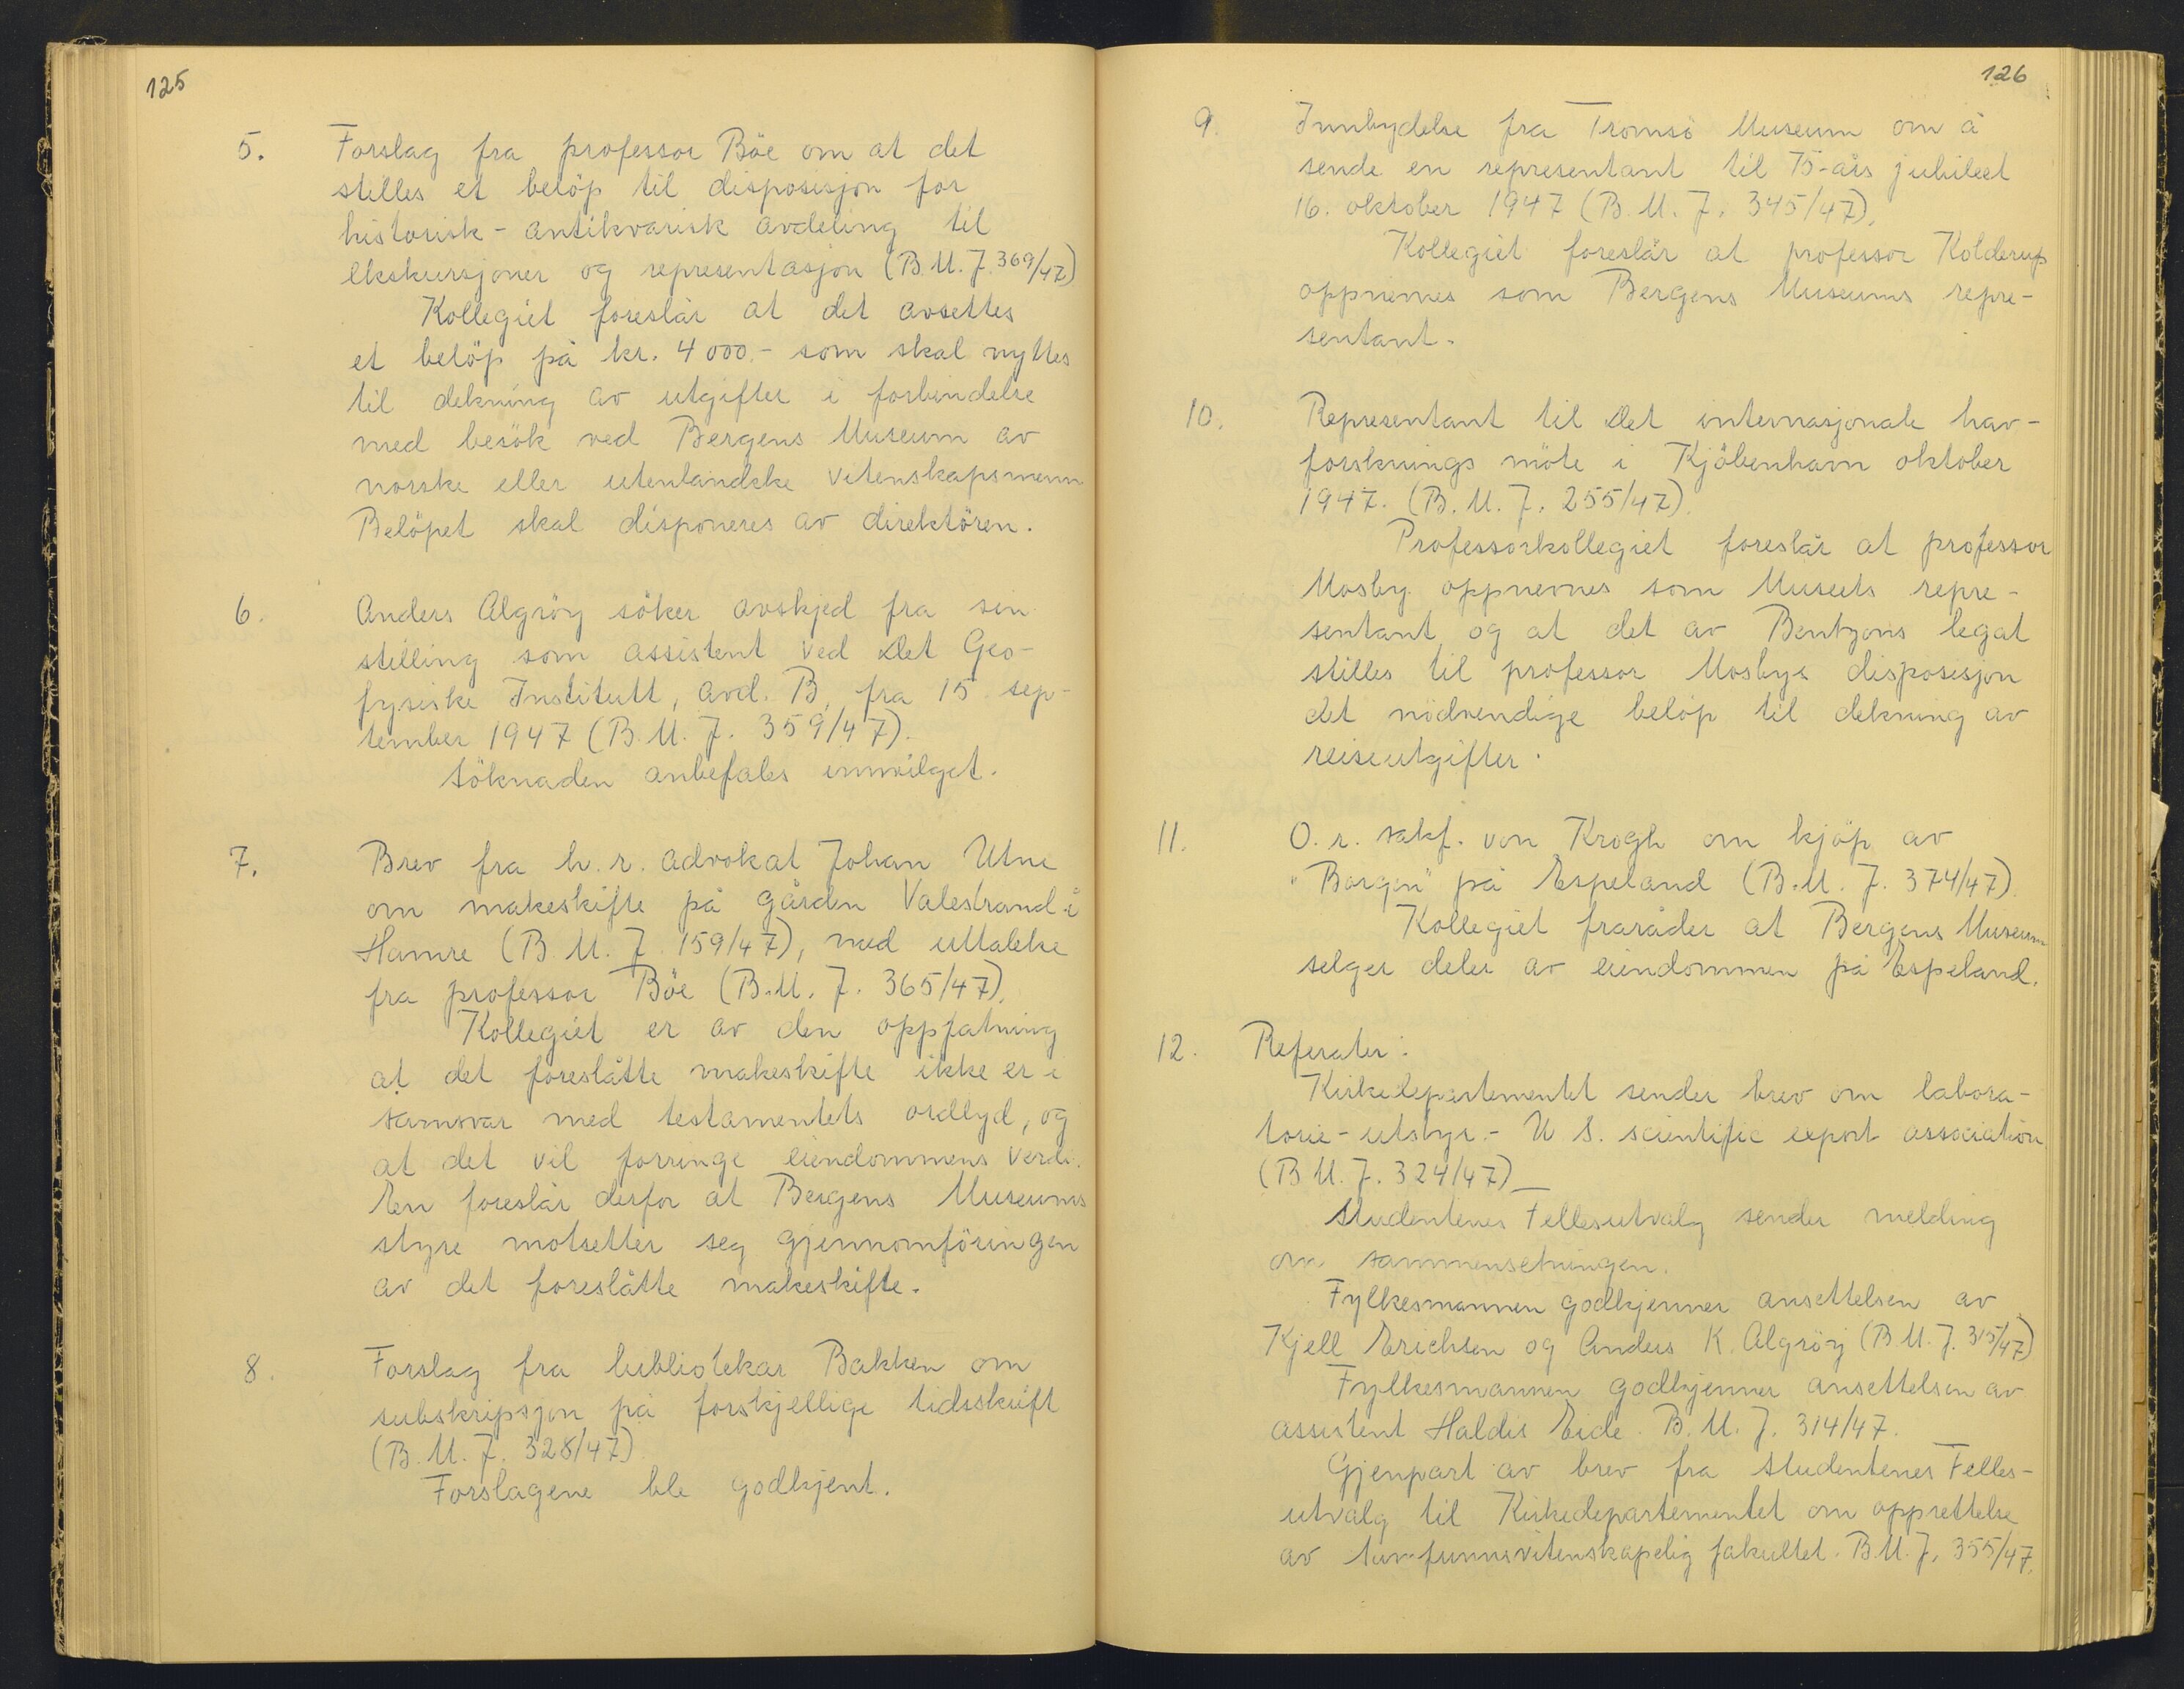 125
5. Forslag fra professor Böe om at det
stilles et belöp til disposisjon for
historisk-antikvarisk avdeling til
ekskursjoner og representasjon (B.M.J. 369/47)
Kollegiet foreslår at det avsettes
et belöp på kr. 4000.- som skal nyttes
til dekning av utgifter i forbindelse
med besök ved Bergens Museum av
norske eller utenlandske vitenskapsmenn
Belöpet skal disponeres av direktören.
6. Anders Algröy söker avskjed fra sin
stilling som assistent ved Det Geo-
fysiske Institutt, avd. B, fra 15. sep-
tember 1947 (B.M.J. 359/47).
Söknaden anbefales innvilget.
7. Brev fra h.r. advokat Johan Utne
om makeskifte på gården Valestrand i
Hamre (B.M.J. 159/47), med uttalelse
fra professor Böe (B.M.J. 365/47).
Kollegiet er av den oppfatning
at det foreslåtte makeskifte ikke er i
samsvar med testamentets ordlyd, og
at det vil forringe eiendommens verdi.
En foreslår derfor at Bergens Museums
styre motsetter seg gjennomföringen
av det foreslåtte makeskifte.
8. Forslag fra bibliotekar Bakken om
subskripsjon på forskjellige tidsskrift
(B.M.J. 328/47)
Forslagene ble godkjent.
126
9. Innbydelse fra Tromsö Museum om å
sende en representant til 75-års jubileet
16. oktober 1947 (B.M.J. 345/47).
Kollegiet foreslår at professor Kolderup
oppnevnes som Bergens Museums repre-
sentant.
10. Representant til Det internasjonale hav-
forsknings möte i Kjöbenhavn oktober
1947. (B.M.J. 255/47).
Professorkollegiet foreslår at professor
Mosby oppnevnes som Museets repre-
sentant, og at det av Bentzons legat
stilles til professor Mosbys disposisjon
det nödvendige belöp til dekning av
reiseutgifter.
11. O.r. sakf. von Krogh om kjöp av
"Borgen" på Espeland (B.M.J. 374/47).
Kollegiet fraråder at Bergens Museum
selger deler av eiendommen på Espeland.
12. Referater:
Kirkedepartementet sender brev om labora-
torie-utstyr.- U S. scientific export association
(B M.J. 324/47)_
Studentenes Fellesutvalg sender melding
om sammensetningen.
Fylkesmannen godkjenner ansettelsen av
Kjell Erichsen og Anders K. Algröy (B.M.J. 315/47)
Fylkesmannen godkjenner ansettelsen av
assistent Haldis Eide. B.M.J. 314/47.
Gjenpart av brev fra Studentenes Felles-
utvalg til Kirkedepartementet om opprettelse
av fakultet. B.M.J. 355/47.